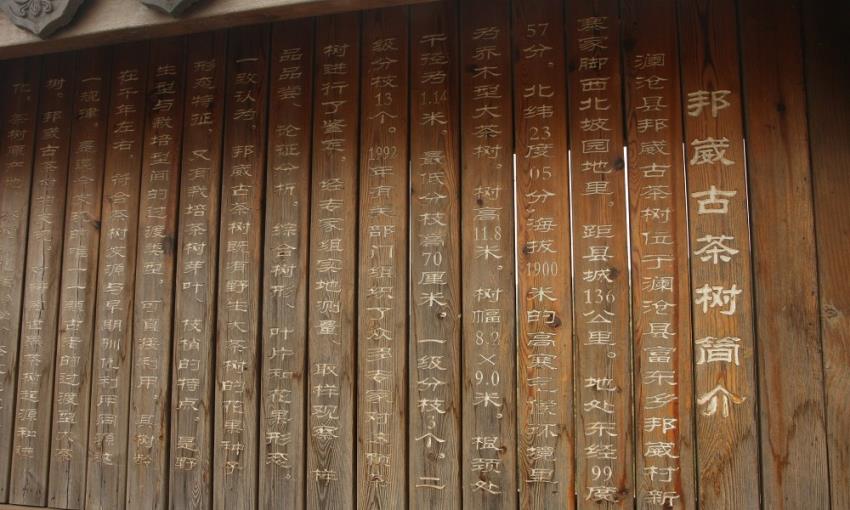 邦崴古茶树简介
澜沧县邦崴古茶树位于澜沧县富东乡邦崴村新
寨家脚西北坡园地里。距县城136公里。地处东经99度
57分，北纬23度05分，海拔1900米的高寒气候环境里
为乔木型大茶树。树高11.8米。树幅8.2×9.0米。根颈处
干径为1.14米。最低分枝高70厘米。一级分枝3个。二
级分枝13个。1992年有关部门组织了众多专家对该
树进行了鉴定。经专家组实地测量、取样观察、样
品品尝、论证分析。综合树形、叶片和花果形态。
一致认为，邦崴古茶树既有野生大茶树的花果种子
形态特征，又有栽培茶树芽叶、枝梢的特点。是野
生型与栽培型间的过渡类型，可直接利用。其树龄
在千年左右，符合茶树发源与早期驯化利用同源这
一规律。是迄今发现的唯一一颗古老的过渡型大茶
树。邦崴古茶树的发现，对研究世界茶树起源和进
化，茶树原产地